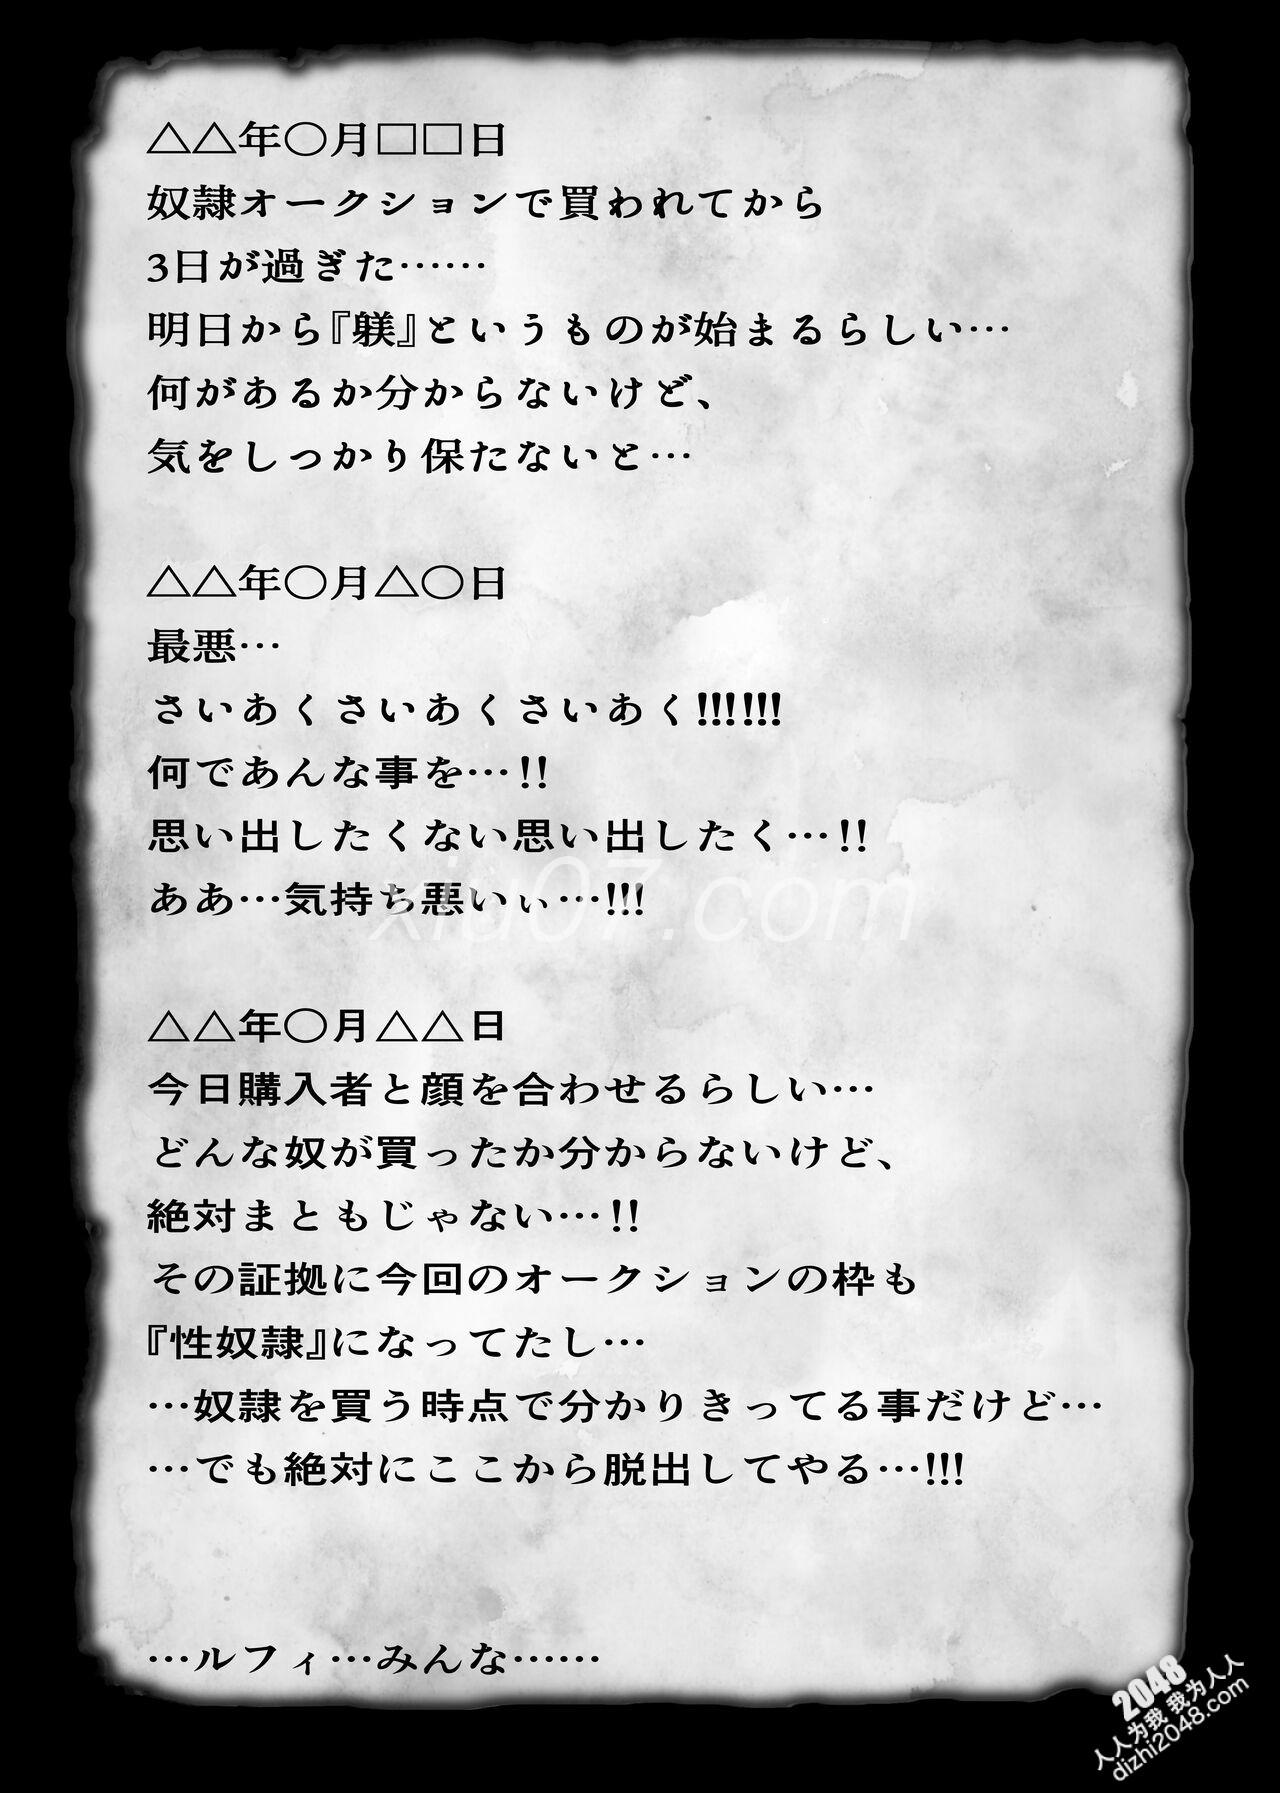 △△年〇月□□日
奴隷オークションで買われてから
3日が過ぎた……
明日から『躾』というものが始まるらしい…
何があるか分からないけど、
気をしっかり保たないと…
△△年〇月△〇日
最悪…
さいあくさいあくさいあく!!!!!!
何であんな事を…!!
思い出したくない思い出したく…!!
ああ…気持ち悪いぃ…!!!
xiu07.com
△△年〇月△△日
今日購入者と顔を合わせるらしい…
どんな奴が買ったか分からないけど、
絶対まともじゃない…!!
その証拠に今回のオークションの枠も
『性奴隷』になってたし…
…奴隷を買う時点で分かりきってる事だけど…
…でも絶対にここから脱出してやる…!!!
…ルフィ…みんな……
2048
人人为我 我为人人
dizhi2048.com